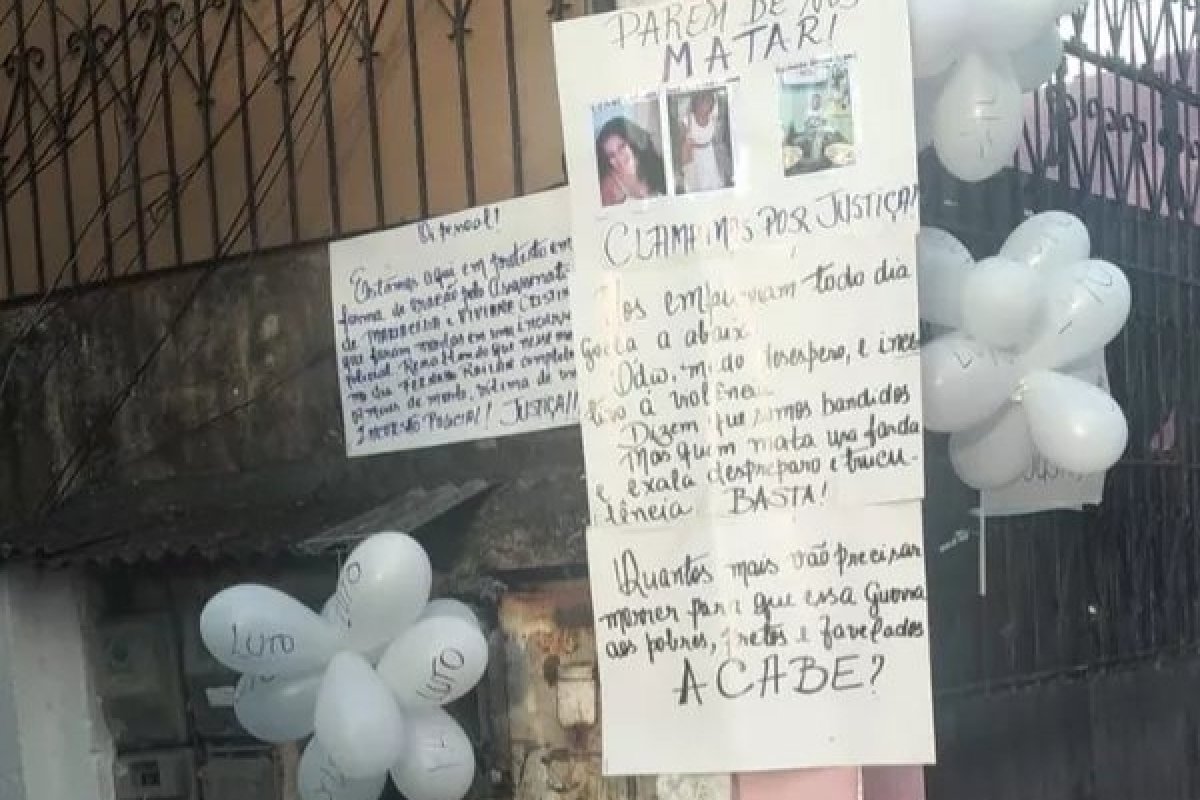 PAREM DE NOS
MATAR!
CLAMAMOS POR JUSTIÇA!
Nos empurram todo dia
Goela a abaix
Ódio, medo desespero, e incen
tivo a violência
Dizem que somos bandidos
Mas quem mata usa farda
e exala despreparo e trucu-
lência BASTA!
Quantos mais vão precisar
morrer para que essa Guerra
aos pobres, pretos e favelados
ACABE?
Oi pessoal!
Estamos aqui em protesto em
forma de oração pelo assassinato
de e VIVIANE CRISTIN
que foram mortas em uma incursão
policial
no dia completa
meses de morto, vítima de
POLICIAL! JUSTIÇA!!
LUTO
LUTO
LUTO